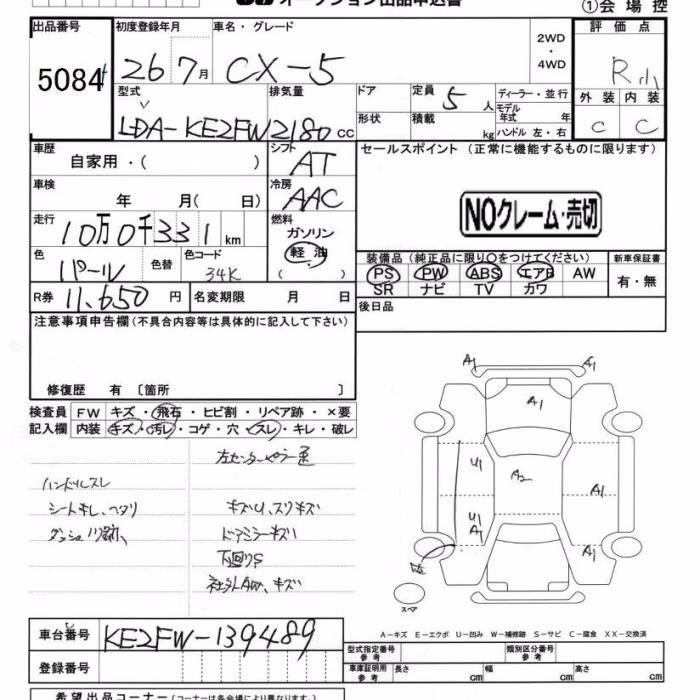 オークション出品申込書 ①会場控
出品番号 初度登録年月 車名・グレード 2WD・4WD 評価点
5084 26 7月 CX-5 R小
型式 排気量 ドア 定員 5人 ディーラー・並行 外装 内装
LDA-KE2FW 2180 cc 形状 積載 kg モデル年式 年 ハンドル 左・右 C C
車歴 自家用・( ) シフト AT セールスポイント (正常に機能するものに限ります)
車検 年 月( 日) 冷房 AAC
走行 10万0千331km 燃料 ガソリン 軽油 ( ) NOクレーム・売切
色 パール 色替 色コード 34K
装備品 (純正品に限り○をつけてください) 新車保証書
PS PW ABS エアB AW 有・無
SR ナビ TV カワ
R券 11,650円 名変期限 月 日 後日品
注意事項申告欄(不具合内容等は具体的に記入して下さい)
修復歴 有 〔箇所 〕
検査員記入欄 FW キズ・飛石・ヒビ割・リペア跡・×要
内装 キズ・汚レ・コゲ・穴・スレ・キレ・破レ
ハンドルスレ
シートキレ、ヘタリ キズU、スリキズ
ダッシュ ドアミラーキズ
下回りS
社外AW、キズ
A1 A1
A1
U1 A2 A1
U1
A1 A1
スペア
A-キズ E-エクボ U-凹み W-補修跡 S-サビ C-腐食 XX-交換済
車台番号 KE2FW-139489
型式指定番号 参考 類別区分番号 参考
登録番号 車庫証明用 参考 長さ cm 幅 cm 高さ cm
希望出品コーナー (コーナーは各会場により異なります。)